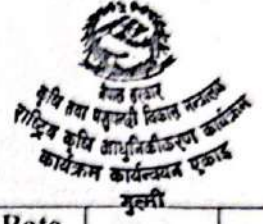 नेपाल सरकार
कृषि तथा पशुपन्छी विकास मन्त्रालय
राष्ट्रिय कृषि आधुनिकीकरण कार्यक्रम
कार्यक्रम कार्यान्वयन एकाइ
गुल्मी
Rate